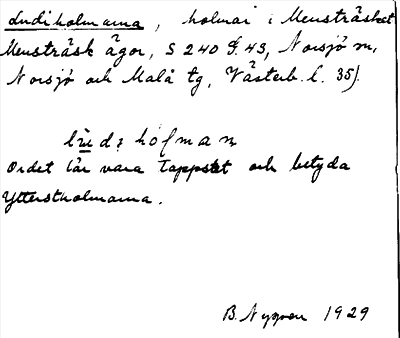 Ludiholmarna, holmar i Mensträsket
Mensträsk ägor, S 240 f. 43, Norsjö sn,
Norsjö och Malå tg, Västerb. l. 35).
lùdiholman
Ordet lär vara lappskt och betyda
Ytterstholmarna.
B. Nygren 1929